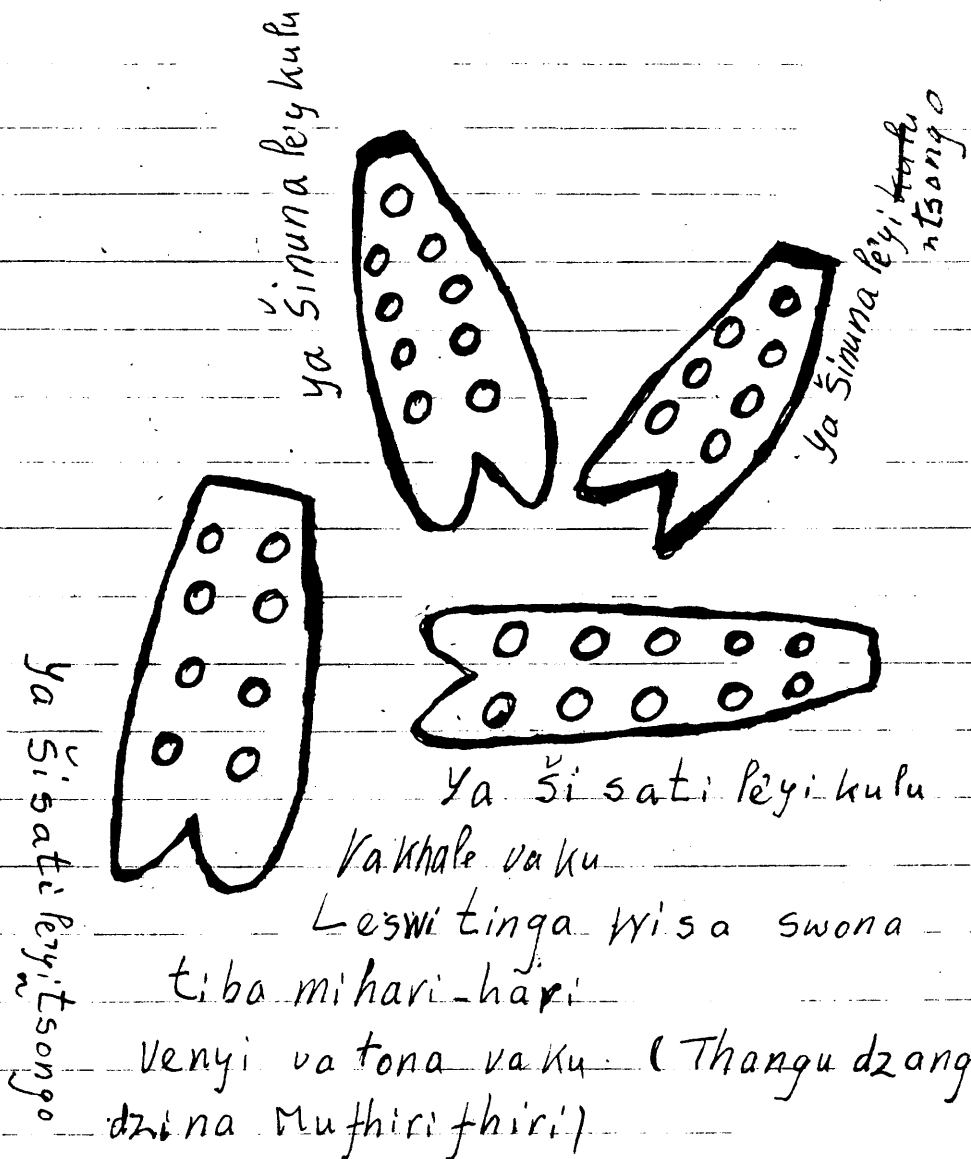 ya šinuna lèyi kulu
ya šinuna lèyi kulu
ntsongo
ya šisati lèyi kulu
ya šisati lèyi ntsongo
Vakhale vaku
Leswi tinga wisa swona
tiba mihari-hãri
venyi va tona vaku. (Thangu dzang
dzina Muthirithiri)